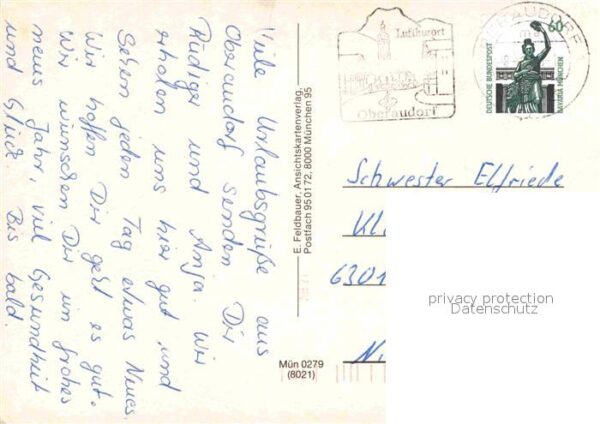 Viele Urlaubsgrüße aus
Oberaudorf senden Dir
Rüdiger und Anja. Wir
erholen uns hier gut und
Sehen jeden Tag etwas Neues.
Wir hoffen Dir geht es gut.
Wir wünschen Dir ein frohes
neues Jahr, viel Gesundheit
und Glück. Bis bald.
E. Feldbauer, Ansichtskartenverlag,
Postfach 950172, 8000 München 95
Mün 0279
(8021)
Luftkurort
Oberaudorf
60
DEUTSCHE BUNDESPOST
BAVARIA MÜNCHEN
Schwester Elfriede
6301
privacy protection
Datenschutz